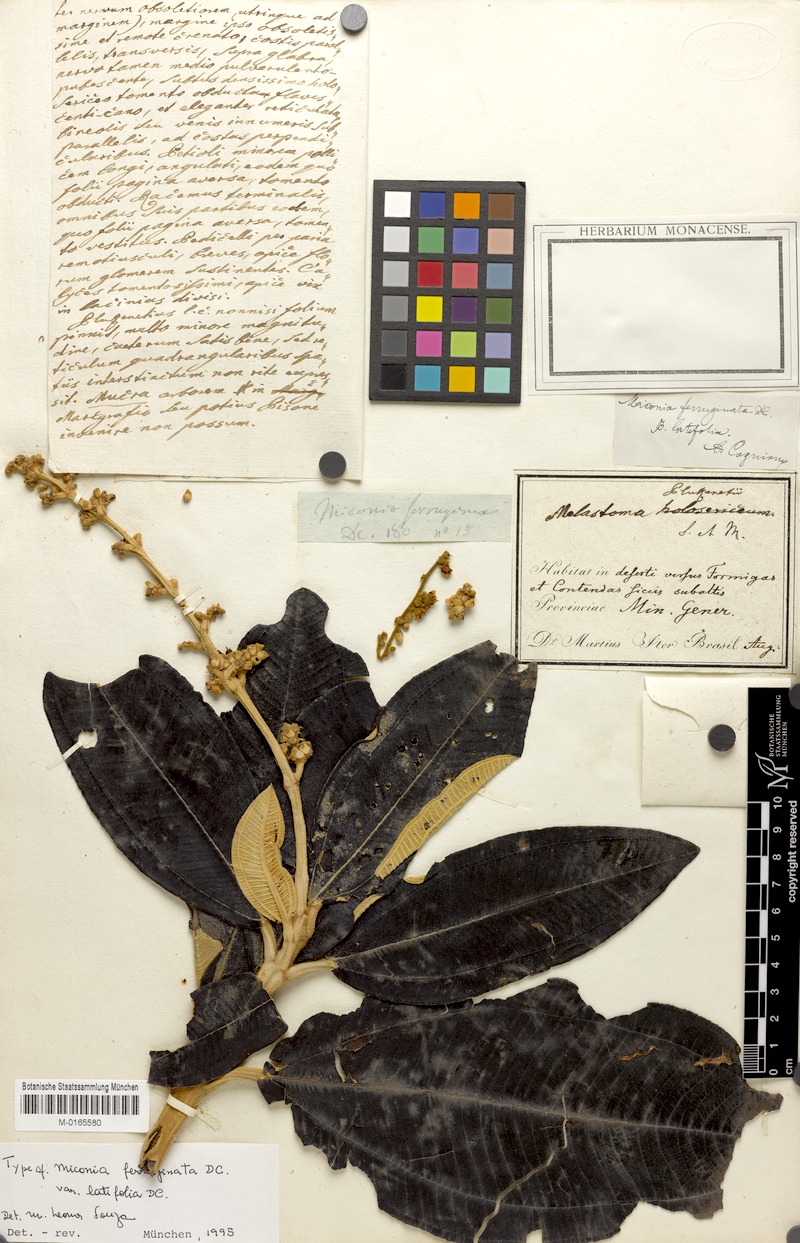 ter nervum obsoletiorem utrinque ad
marginem), margine ipso obsoletis-
sime et remote crenato; costis paral-
lelis, transversis, supra glabra,
nervo tamen medio pulverulento-
pubescente, subtus densissimo holo-
sericeo tomento obducta flaves-
centi-cano, et eleganter reticulata
areolis seu venis innumeris sub-
parallelis, ad costas perpendi-
cularibus. Petioli minorem polli-
cem longi, angulati, eodem quo
folii pagina aversa, tomento
obducti. Racemus terminalis,
omnibus suis partibus eodem,
quo folii pagina aversa, tomen-
to vestitus. Pedicelli per paria
remotiusculi, breves, apice flo-
rum glomerem sustinentes. Ca-
lyces tomentosissimi, apice vix
in lacinias divisi.
Plugenetius l.c. nonnisi folium
pinxit, multo minore magnitu-
dine, caeterum satis bene, sed re-
ticulum quadrangularibus spa-
tiis interstinctum non rite expres-
sit. Mucra arborem in
Marcgrafio seu potius Pisone
invenire non possum.
HERBARIUM MONACENSE.
Miconia ferruginata DC.
B. latifolia.
Cogniaux
Miconia ferruginea
DC. 180 no 15
Plugenetii
Melastoma holosericeum.
S. A M.
Habitat in deserti versus Formigas
et Contendas siccis subaltis
Provinciae Min. Gener.
Dr Martius Iter Brasil. Aug.
BOTANISCHE
STAATSSAMMLUNG
MÜNCHEN
copyright reserved
0 1 2 3 4 5 6 7 8 9 10
cm
Botanische Staatssammlung München
M-0165580
Type of Miconia ferruginata DC.
var. latifolia DC.
Det. M. Leonor Souza
Det. - rev. München, 1995